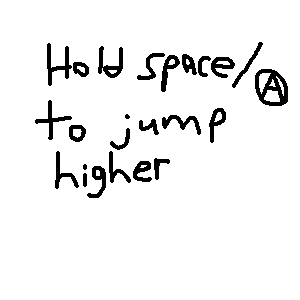 Hold space/Ⓐ
to jump
higher